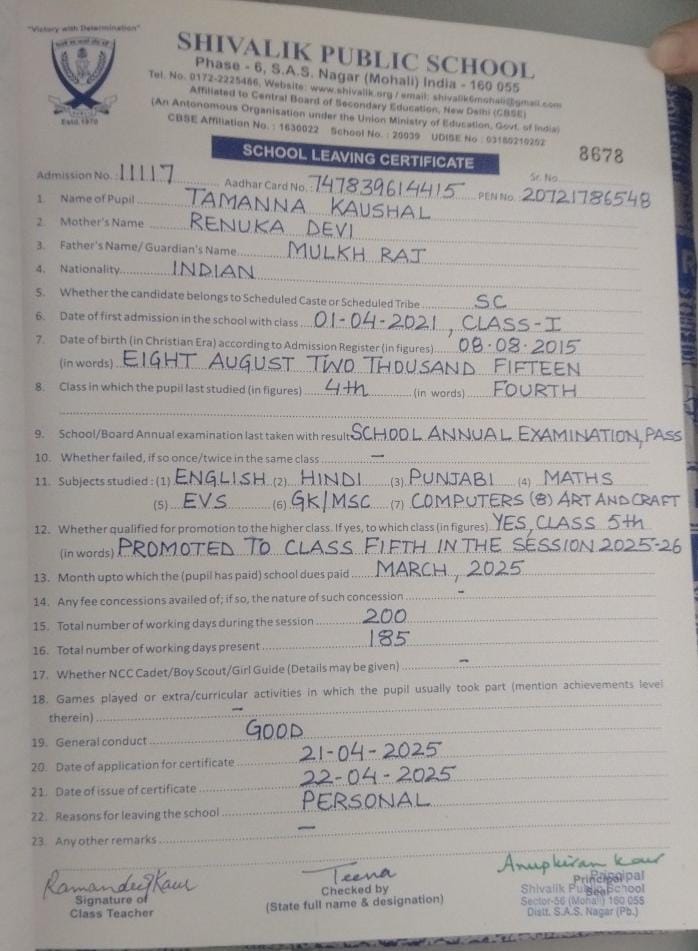 "Victory with Determination"
SHIVALIK PUBLIC SCHOOL
Phase - 6, S.A.S. Nagar (Mohali) India - 160 055
Tel. No. 0172-2225486, Website: www.shivalik.org / email: shivalik6mohali@gmail.com
Affiliated to Central Board of Secondary Education, New Delhi (CBSE)
(An Antonomous Organisation under the Union Ministry of Education, Govt. of India)
CBSE Affiliation No. : 1630022 School No. : 20039 UDISE No : 03180210202
Estd. 1970
SCHOOL LEAVING CERTIFICATE
8678
Sr. No.
Admission No. : 11117 Aadhar Card No. : 747839614415 PEN No. 20721786548
1. Name of Pupil TAMANNA KAUSHAL
2. Mother's Name RENUKA DEVI
3. Father's Name/ Guardian's Name MULKH RAJ
4. Nationality INDIAN
5. Whether the candidate belongs to Scheduled Caste or Scheduled Tribe SC
6. Date of first admission in the school with class 01-04-2021, CLASS-I
7. Date of birth (in Christian Era) according to Admission Register (in figures) 08-08-2015
(in words) EIGHT AUGUST TWO THOUSAND FIFTEEN
8. Class in which the pupil last studied (in figures) 4th (in words) FOURTH
9. School/Board Annual examination last taken with result SCHOOL ANNUAL EXAMINATION, PASS
10. Whether failed, if so once/twice in the same class –
11. Subjects studied : (1) ENGLISH (2) HINDI (3) PUNJABI (4) MATHS
(5) EVS (6) GK/MSC (7) COMPUTERS (8) ART AND CRAFT
12. Whether qualified for promotion to the higher class. If yes, to which class (in figures) YES, CLASS 5th
(in words) PROMOTED TO CLASS FIFTH IN THE SESSION 2025-26
13. Month upto which the (pupil has paid) school dues paid MARCH, 2025
14. Any fee concessions availed of; if so, the nature of such concession -
15. Total number of working days during the session 200
16. Total number of working days present 185
17. Whether NCC Cadet/Boy Scout/Girl Guide (Details may be given) –
18. Games played or extra/curricular activities in which the pupil usually took part (mention achievements level
therein) –
19. General conduct GOOD
20. Date of application for certificate 21-04-2025
21. Date of issue of certificate 22-04-2025
22. Reasons for leaving the school PERSONAL
23. Any other remarks –
Ramandeep Kaur
Signature of
Class Teacher
Teena
Checked by
(State full name & designation)
Anupkiran Kaur
Principal
Principal
Shivalik Public School
Seal
Sector-56 (Mohali) 160 055
Distt. S.A.S. Nagar (Pb.)